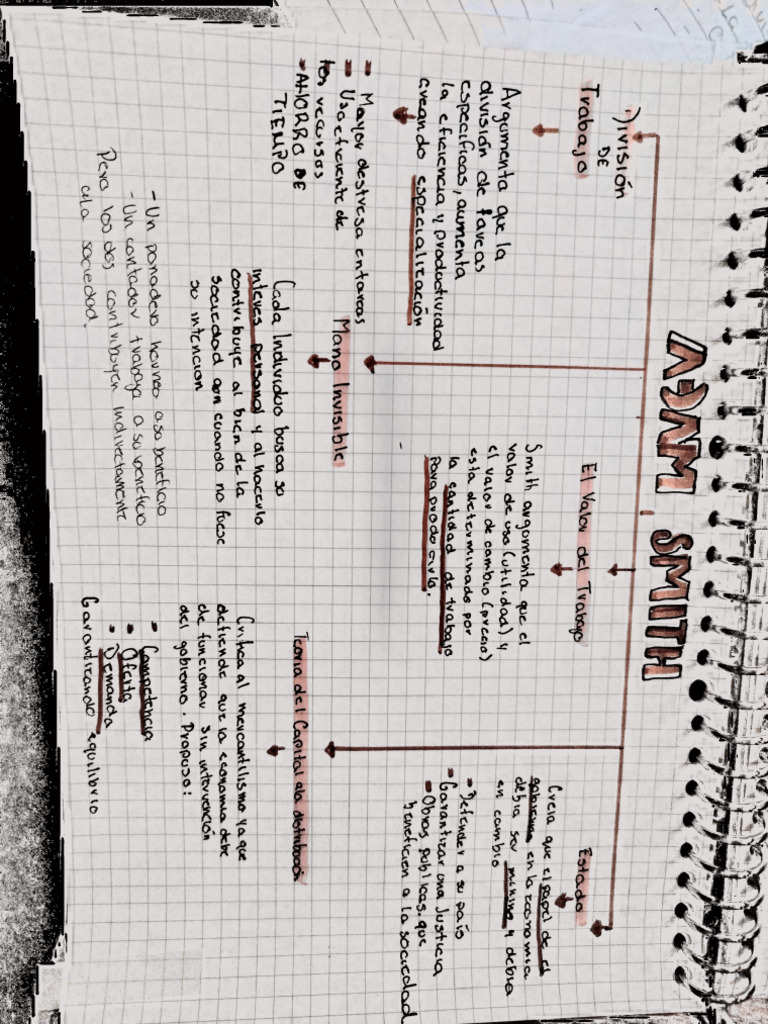 ADAM SMITH
División
DE
Trabajo
Argumenta que la
división de tareas
especificas, aumenta
la eficiencia y productividad
creando especialización
- Mayor destresa en tareas
- Uso eficiente de
los recursos
- AHORRO DE
TIEMPO
Mano Invisible
Cada Individuo busca su
interes personal y al hacerlo
contribuye al bien de la
sociedad aun cuando no fuese
su intención
- Un panadero hornea a su beneficio
- Un contador trabaja a su beneficio
Pero los dos contribuyen indirectamente
a la sociedad.
El Valor del Trabajo
Smith argumenta que el
valor de uso (utilidad) y
el valor de cambio (precio)
esta determinado por
la cantidad de trabajo
para producirlo.
Teoria del Capital a la distribución
Critica al mercantilismo ya que
defiende que la economia debe
de funcionar sin intervención
del gobierno. Propuso:
- Competencia
- Oferta
- Demanda
Garantizando equilibrio
Estado
Creia que el papel de el
gobierno en la economia
debia ser minimo y debia
en cambio
- Defender a su país
- Garantizar una Justicia
- Obras publicas que
beneficien a la sociedad